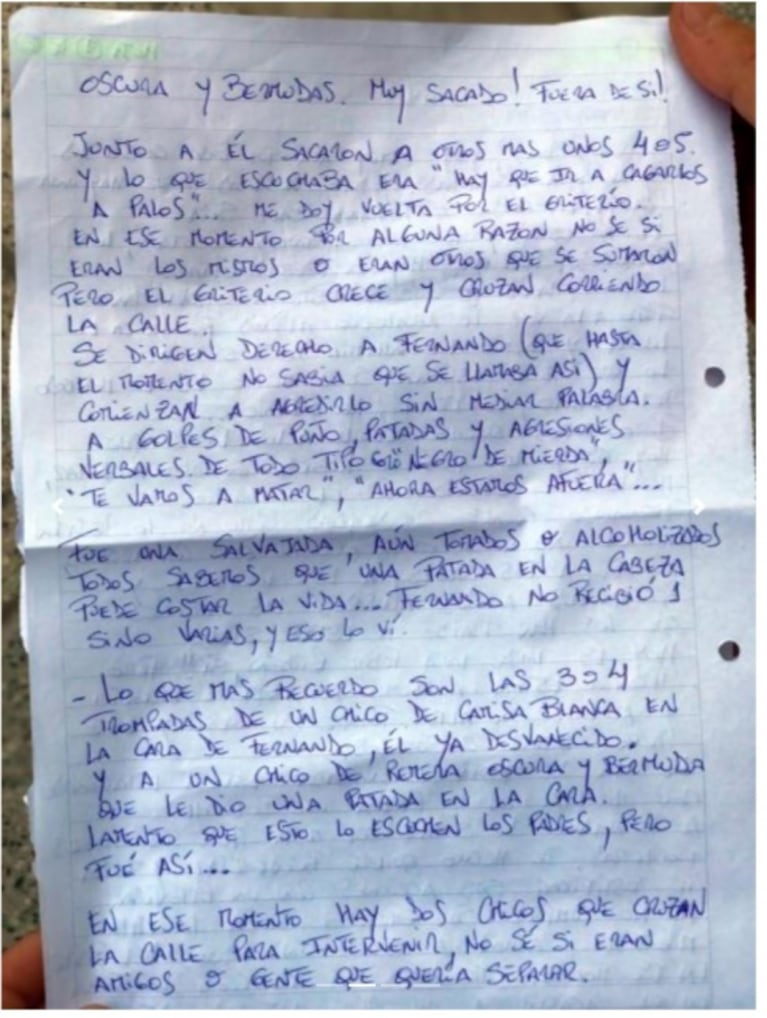 OSCURA Y BERMUDAS. MUY SACADO! FUERA DE SI!
JUNTO A ÉL SACARON A OTROS MAS UNOS 4 o 5.
Y LO QUE ESCUCHABA ERA "HAY QUE IR A CAGARLOS
A PALOS"... ME DOY VUELTA POR EL GRITERÍO.
EN ESE MOMENTO POR ALGUNA RAZON NO SE SI
ERAN LOS MISMOS O ERAN OTROS QUE SE SUMARON
PERO EL GRITERIO CRECE Y CRUZAN CORRIENDO
LA CALLE.
SE DIRIGEN DERECHO A FERNANDO (QUE HASTA
EL MOMENTO NO SABIA QUE SE LLAMABA ASÍ) Y
COMIENZAN A AGREDIRLO SIN MEDIAR PALABRA.
A GOLPES DE PUÑO, PATADAS Y AGRESIONES
VERBALES DE TODO TIPO "NEGRO DE MIERDA",
"TE VAMOS A MATAR", "AHORA ESTAMOS AFUERA"...
FUE UNA SALVAJADA, AÚN TOMADOS O ALCOHOLIZADOS
TODOS SABEMOS QUE UNA PATADA EN LA CABEZA
PUEDE COSTAR LA VIDA... FERNANDO NO RECIBIÓ 1
SINO VARIAS, Y ESO LO VÍ.
- LO QUE MAS RECUERDO SON LAS 3 o 4
TROMPADAS DE UN CHICO DE CAMISA BLANCA EN
LA CARA DE FERNANDO, ÉL YA DESVANECIDO.
Y A UN CHICO DE REMERA OSCURA Y BERMUDA
QUE LE DIO UNA PATADA EN LA CARA.
LAMENTO QUE ESTO LO ESCUCHEN LOS PADRES, PERO
FUÉ ASÍ...
EN ESE MOMENTO HAY DOS CHICOS QUE CRUZAN
LA CALLE PARA INTERVENIR, NO SÉ SI ERAN
AMIGOS O GENTE QUE QUERÍA SEPARAR.